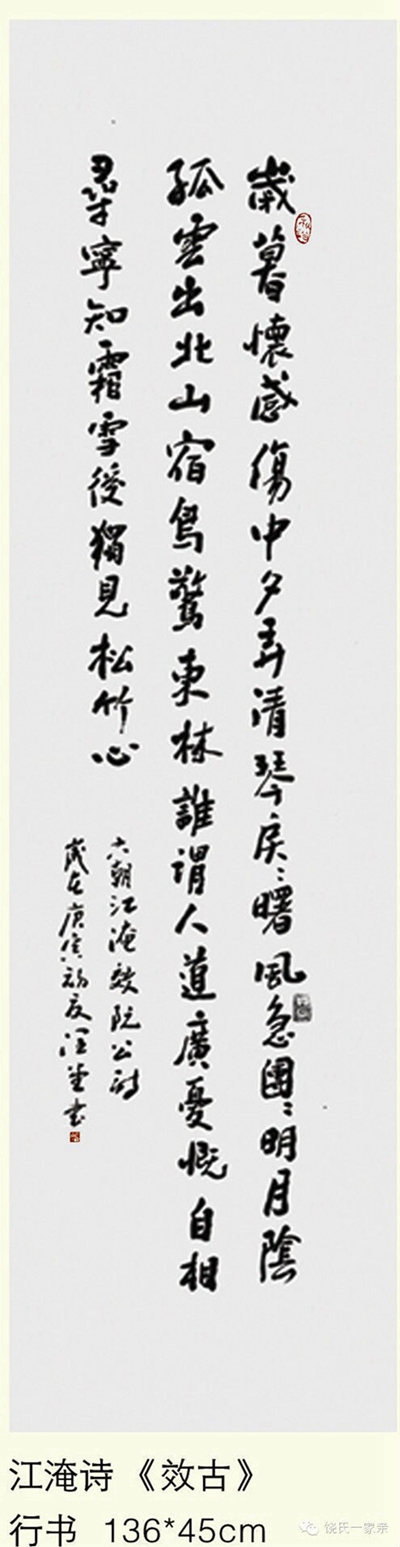 歲暮懷感傷中夕弄清琴戾〻曙風急團〻明月陰
孤雲出北山宿鳥驚東林誰謂人道廣憂慨自相
尋寧知霜雪後獨見松竹心
六朝江淹效阮公詩
歲在庚寅初夏书
江淹诗《效古》
行书 136*45cm
饶氏一家亲